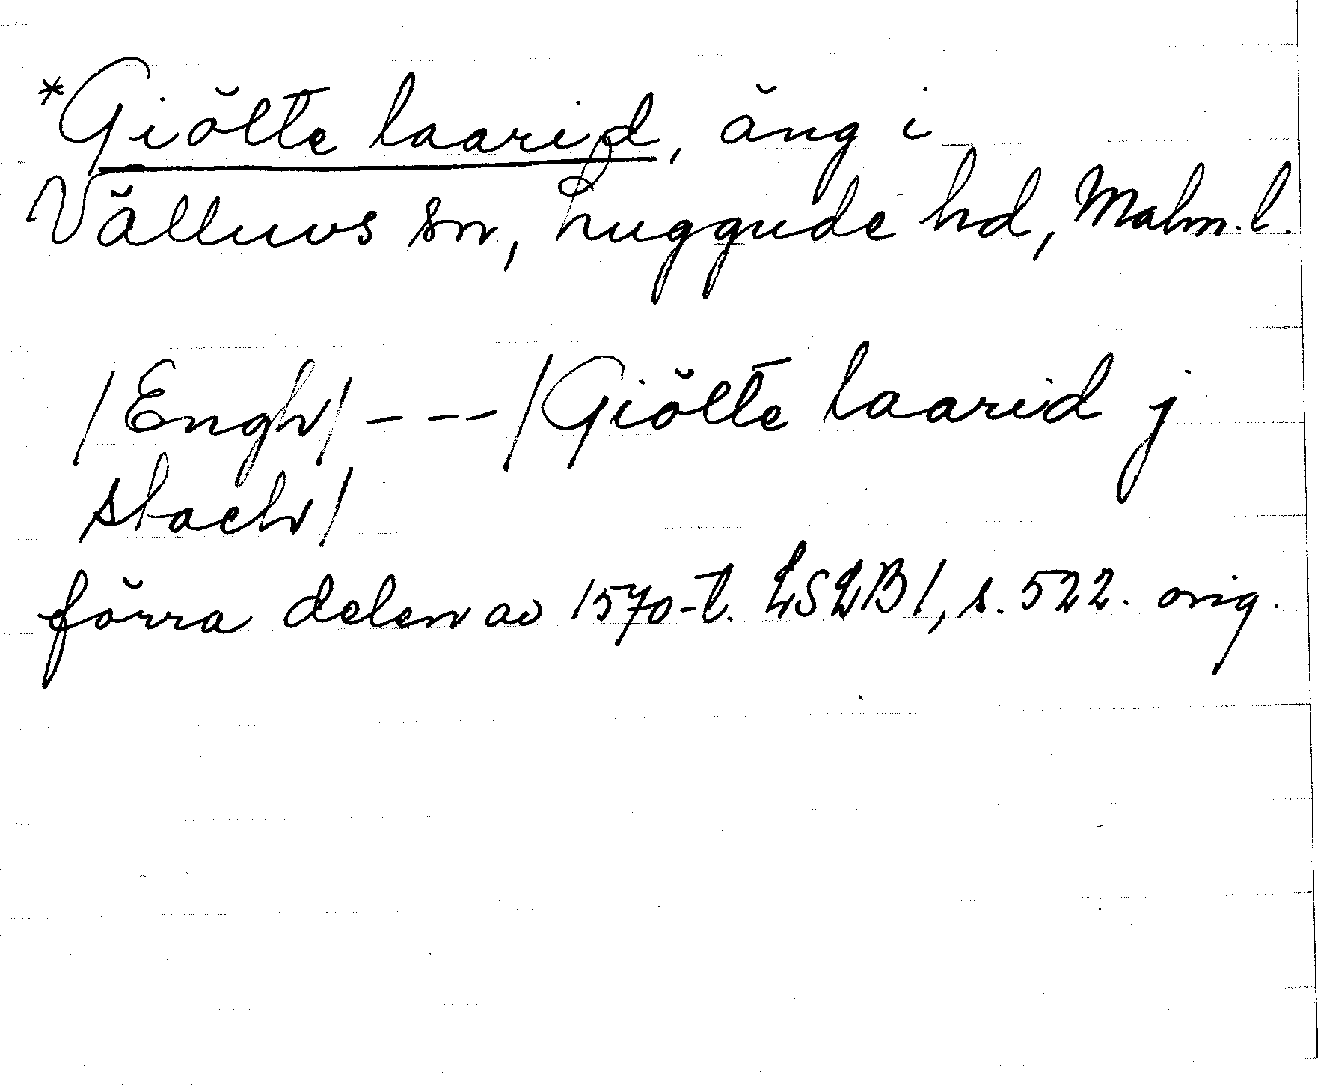 *Giölte laarid, äng i
Välluvs sn, Luggude hd, Malm. l.
/Engh/ - - - /Giölte laarid j
stach/
förra delen av 1570-t. LSLB 1, s. 522. orig.